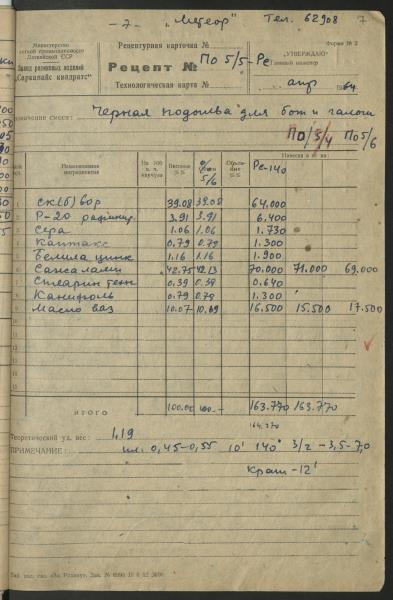 -7- "Метеор" Тел. 62908 7
Министерство
легкой промышленности
Латвийской ССР
Завод резиновых изделий
"Саркапайс квадратс"
Рецептурная карточка №
Рецепт № По 5/5-Ре
Технологическая карта №
Форма № 2
"УТВЕРЖДАЮ"
Главный инженер
апр 1964
Назначение смеси: Черная подошва для бот и галош
По/5/4 По 5/6
Наименование ингредиентов На 100 в. ч. каучука Весовые %% 5/6 Объемные %% Навеска в кг на:
Ре-140
1 СК(б) вор 39.08 39.08 64.000
2 Р-20 рафинир. 3.91 3.91 6.400
3 Сера 1.06 1.06 1.730
4 Каптакс 0.79 0.79 1.300
5 Белила цинк 1.16 1.16 1.900
6 Сажа ламп 42.75 42.13 70.000 71.000 69.000
7 Стеарин техн 0.39 0.39 0.640
8 Канифоль 0.79 0.79 1.300
9 Масло ваз 10.07 10.69 16.500 15.500 17.500
10
11
12
13
14
15
ИТОГО 100.00 100.- 163.770 163.770
164.270
Теоретический уд. вес: 1,19
ПРИМЕЧАНИЕ: пл. 0,45-0,55 10' 140° 3/2-3,5-7,0
Краш-12'